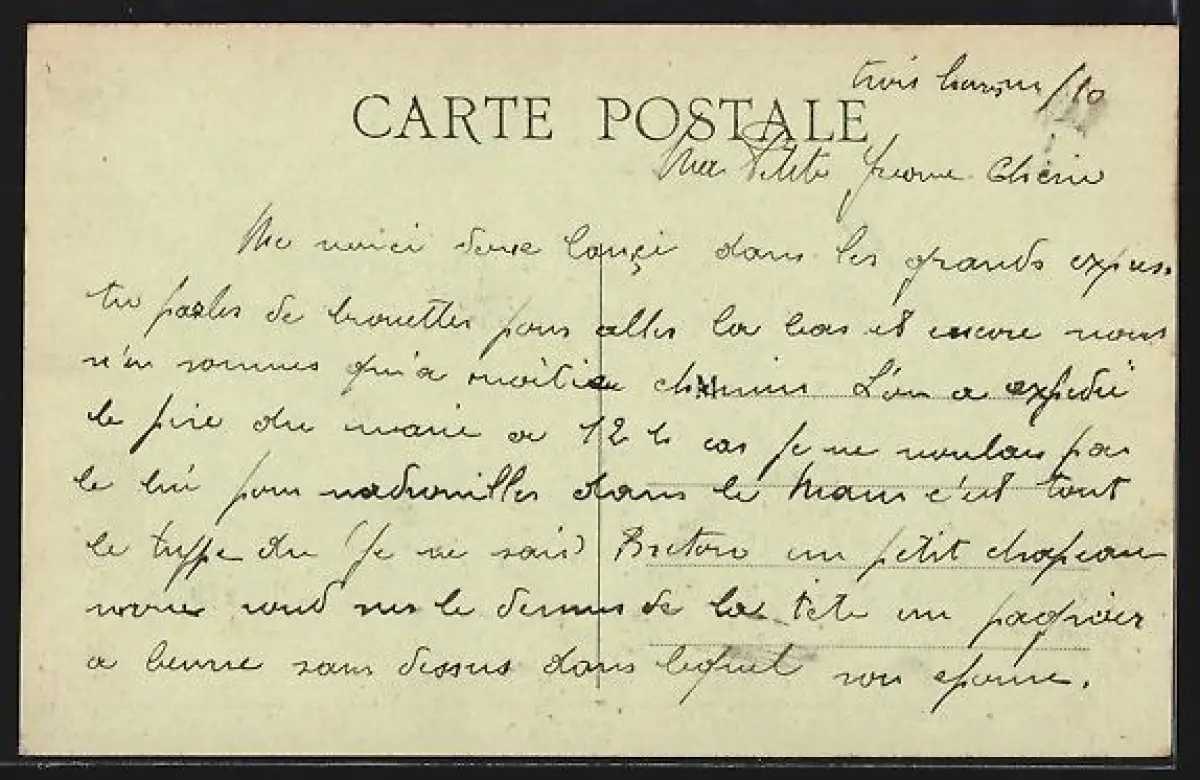 trois heures /10
CARTE POSTALE
Ma Petite Jeanne Chérie
Me voici donc lançé dans les grands express
tu parles de brouettes pour aller la bas et encore nous
n'en sommes qu'a moitié chemin L'on a expedié
le père du marié a 12 h car je ne voulais pas
le lui pour vadrouiller dans le Mans c'est tout
le type du (je ne sais) Breton un petit chapeau
rond sur le dessus de la tête un pagnier
a beurre sans dessus dans lequel son epouse.